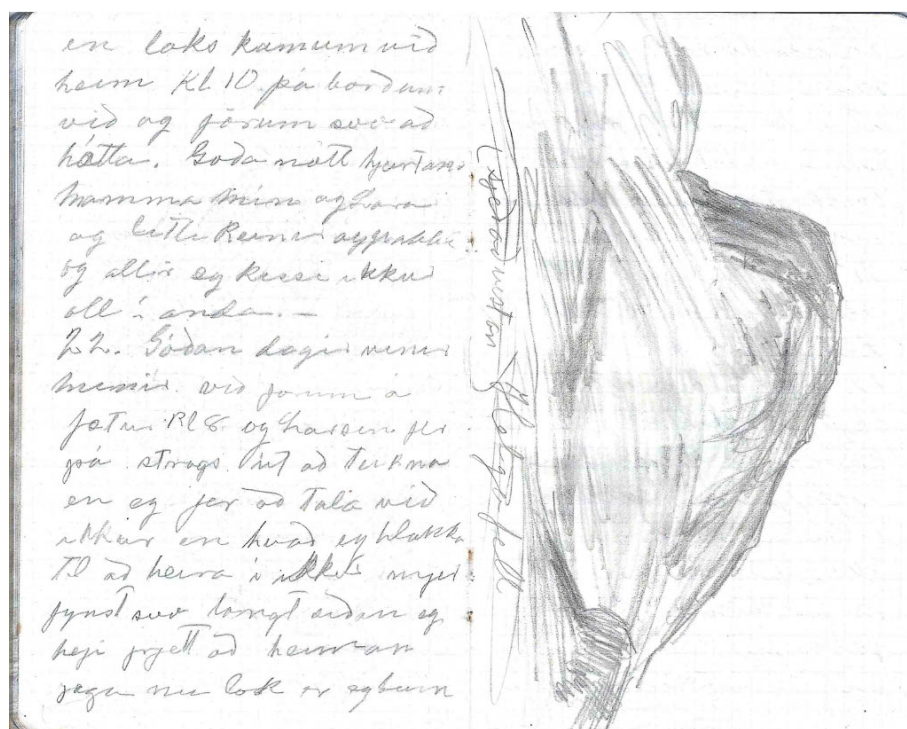 en loks kamum við
heim Kl 10 þá borðum
við ogförum svo að
hátta. Goða nótt hjartans
mamma mín og Lára
og litli Reinir og pabbi
og allir eg kissi ikkur
öll í anda. –
22. Góðan daginn vinir
mínir við förum á
fætur Kl 8 og Larsen fer
þá strags út að teikna
en eg fer að tala við
ikkur en hvað eg hlakka
til að heira í ikkur mjer
fynst svo langt síðan eg
hefi frjett að heiman
jæga nú lok er eg búin
Helgafell